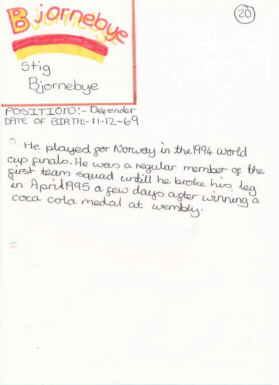 Bjornebye
20
Stig
Bjornebye
POSITION:- Defender
DATE OF BIRTH:- 11-12-69
" He played for Norway in the 1994 world
cup finals. He was a regular member of the
first team squad untill he broke his leg
in April 1995 a few days after winning a
coca cola medal at wembly.